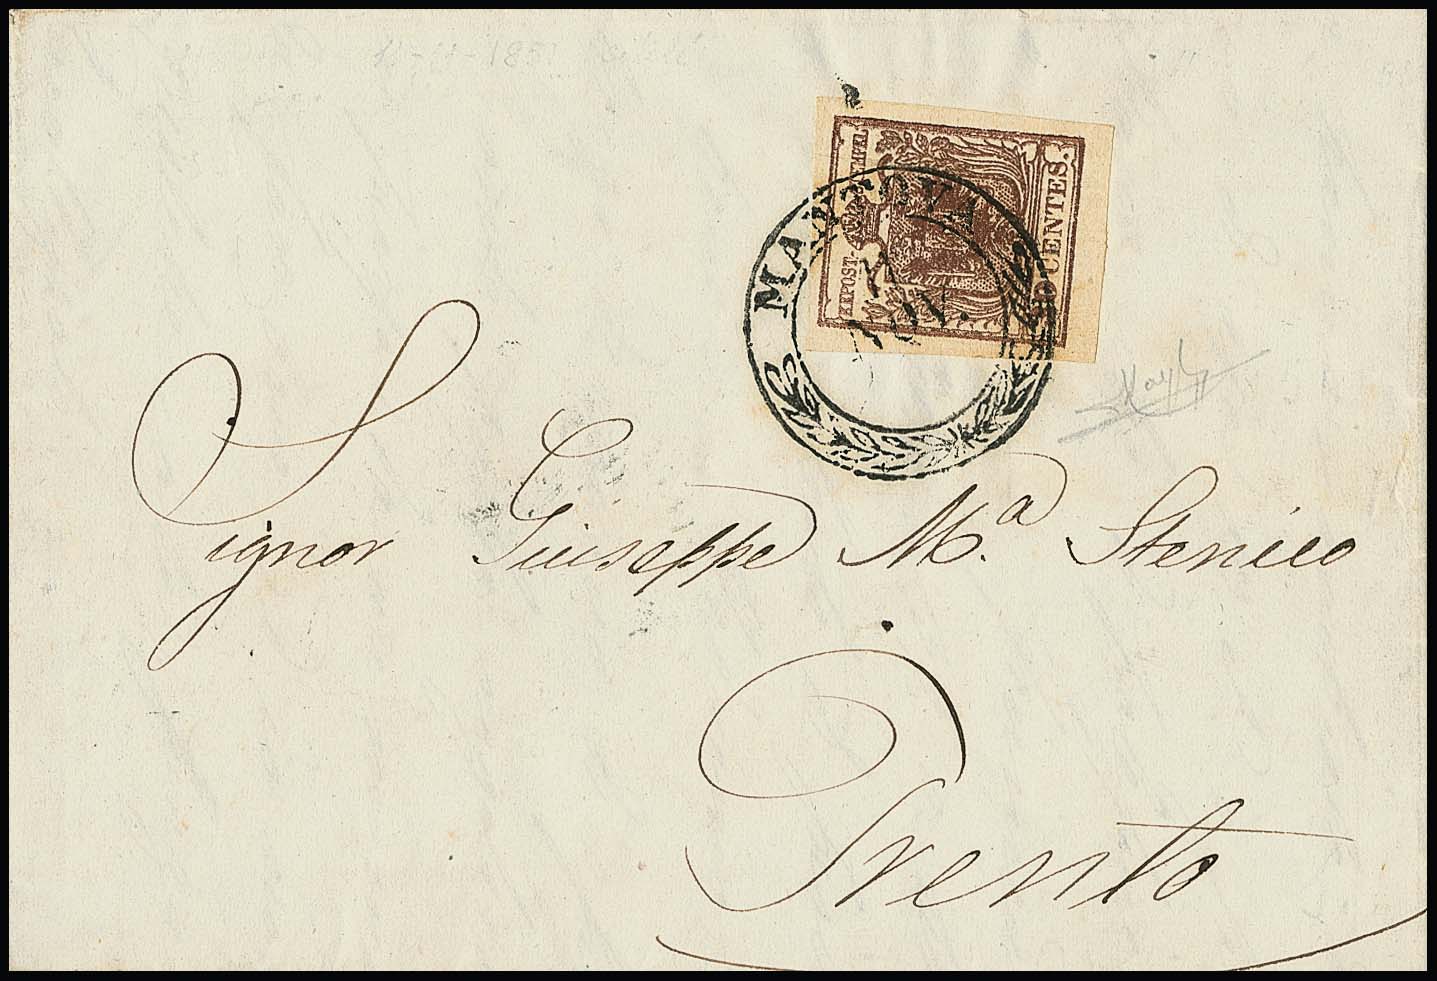 11-11-1851
KKPOST-STEMPEL
30 CENTES.
MANTOVA
11
NOV.
Signor Giuseppe M.a Stenico
Trento